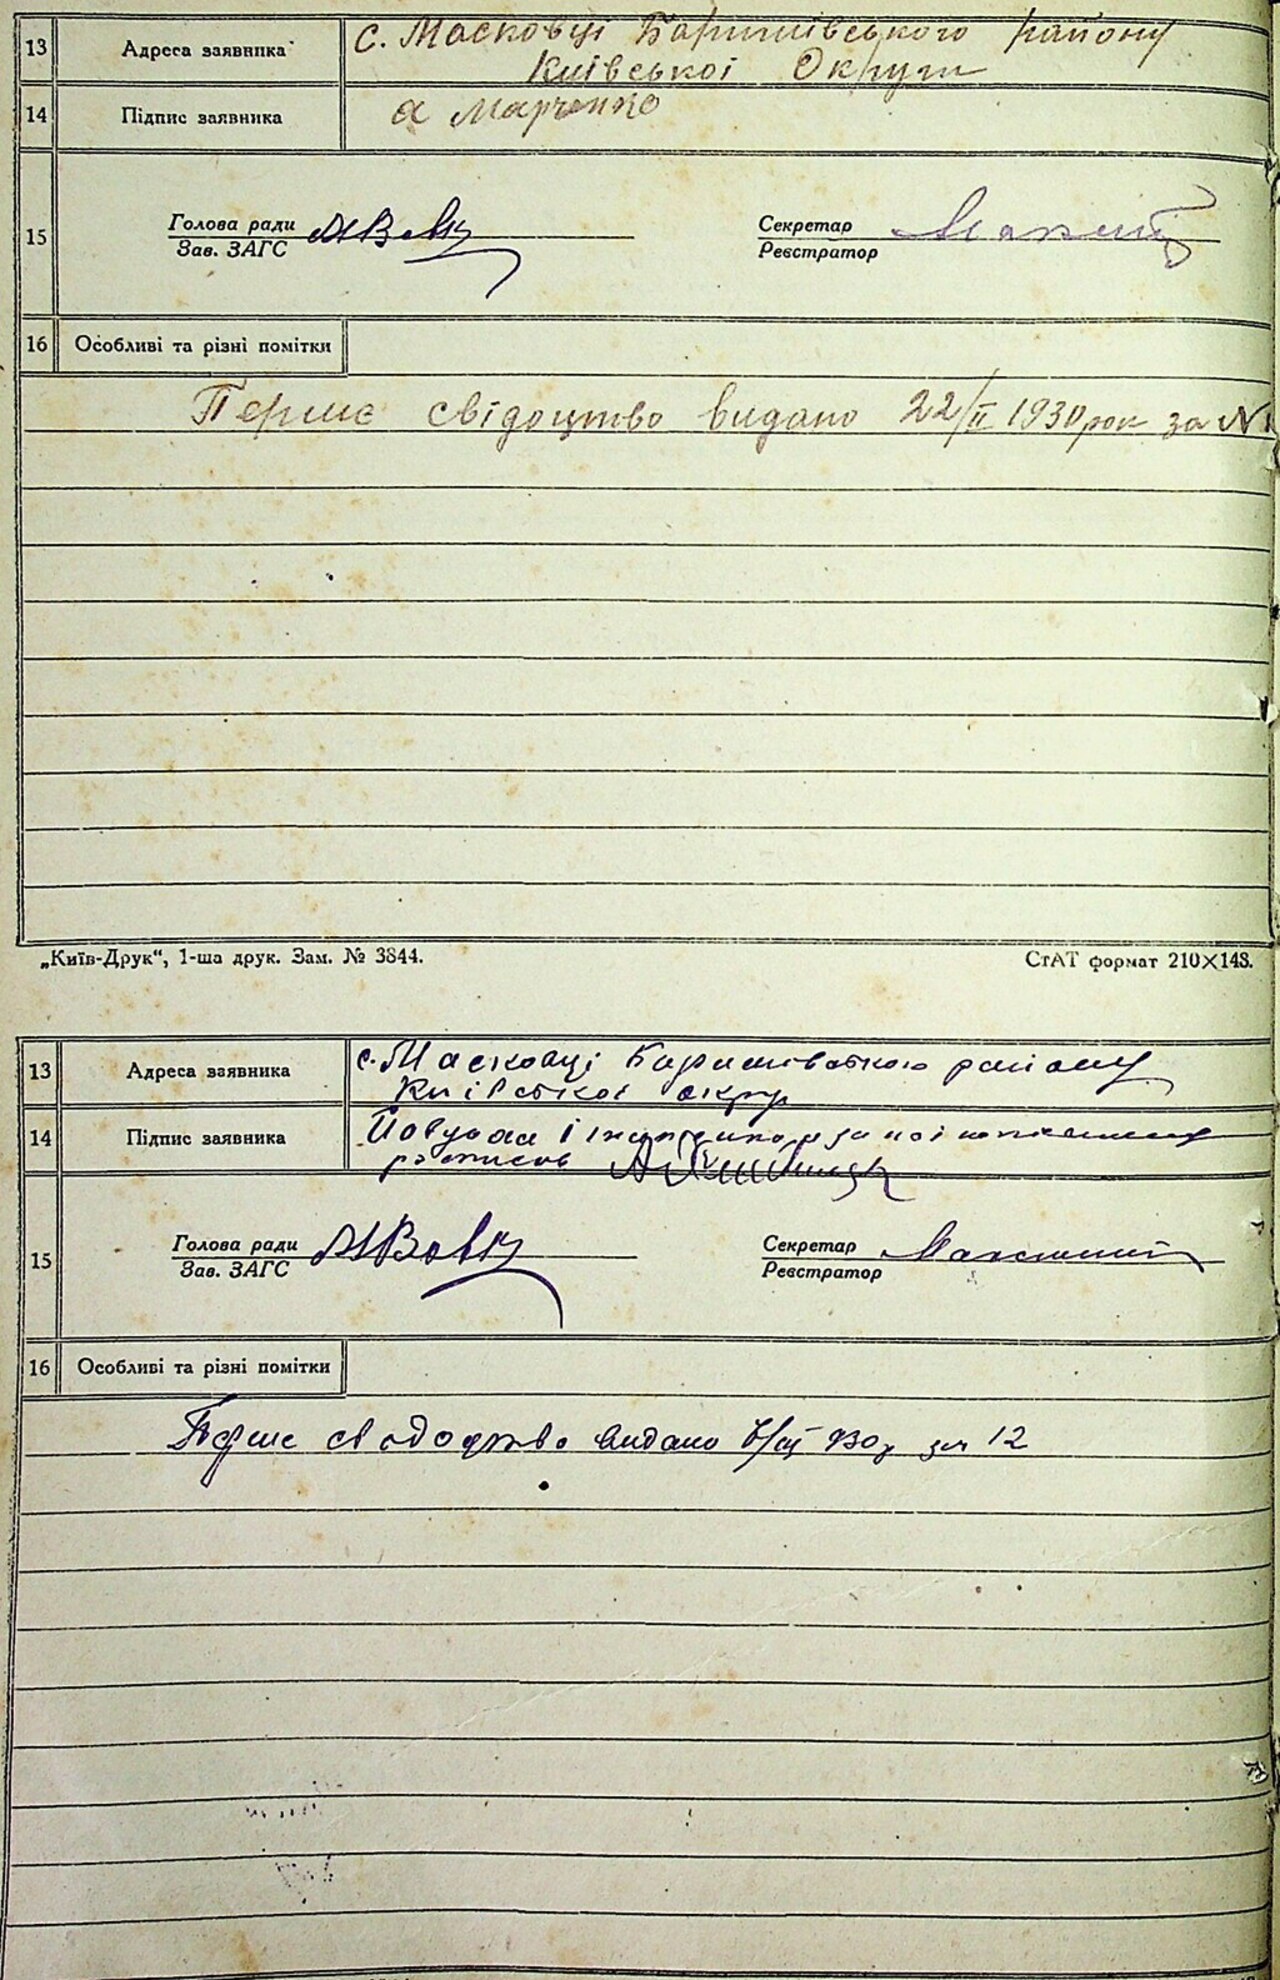 13 Адреса заявника с. Масковці Баришівського району
Київської Округи
14 Підпис заявника а Марченко
15 Голова ради
Зав. ЗАГС
Секретар
Реєстратор
16 Особливі та різні помітки
Перше свідоцтво видано 22/II 1930 рок за №
„Київ-Друк“, 1-ша друк. Зам. № 3844.
СтАТ формат 210×148.
13 Адреса заявника с. Масковці Баришівського району
Київської окр
14 Підпис заявника
росписов
15 Голова ради АВовк
Зав. ЗАГС
Секретар
Реєстратор
16 Особливі та різні помітки
Перше видано за 12